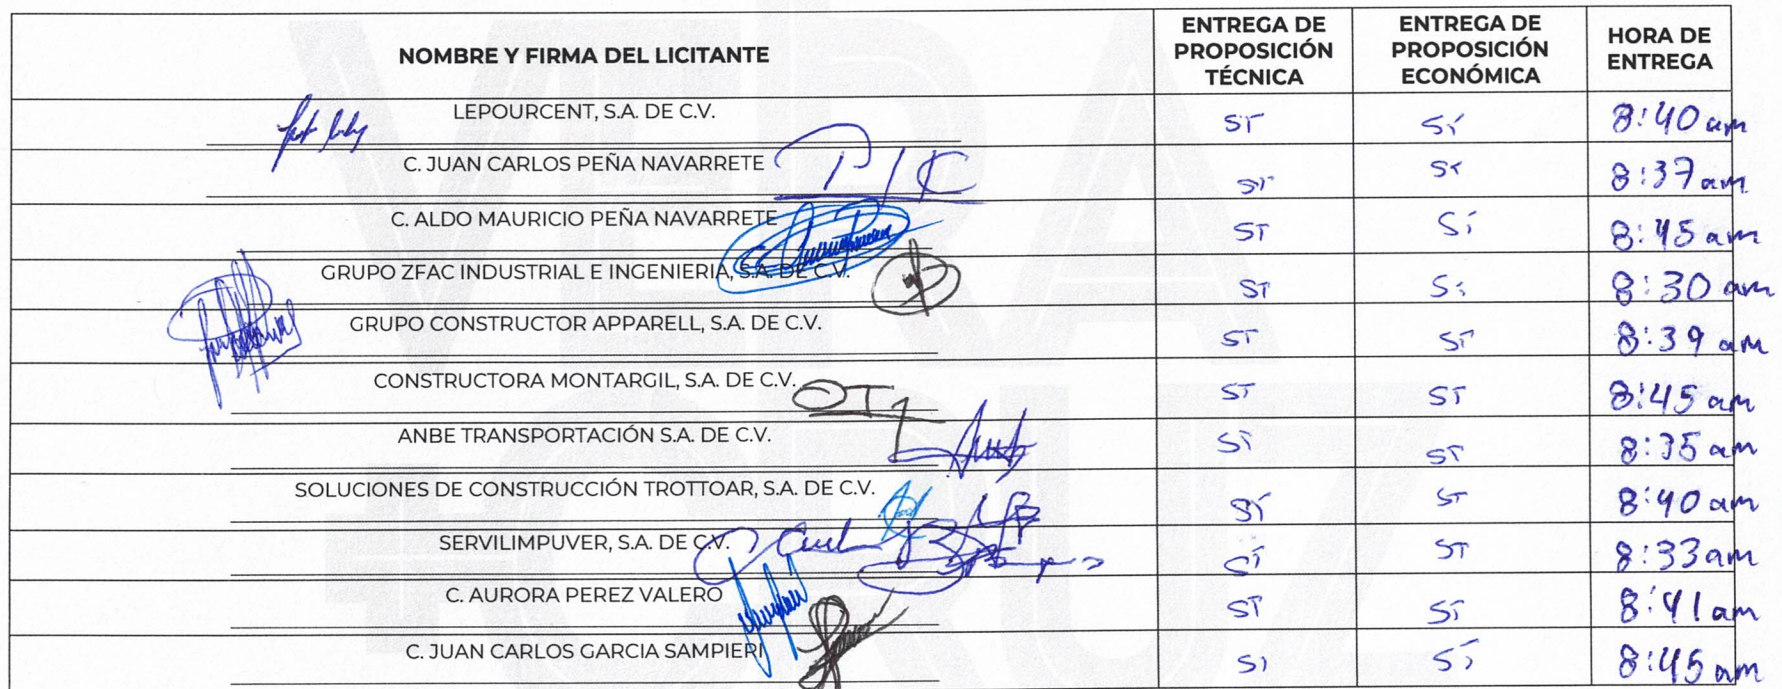 NOMBRE Y FIRMA DEL LICITANTE ENTREGA DE PROPOSICIÓN TÉCNICA ENTREGA DE PROPOSICIÓN ECONÓMICA HORA DE ENTREGA
LEPOURCENT, S.A. DE C.V. SÍ SÍ 8:40 am
C. JUAN CARLOS PEÑA NAVARRETE SÍ SÍ 8:37 am
C. ALDO MAURICIO PEÑA NAVARRETE SÍ SÍ 8:45 am
GRUPO ZFAC INDUSTRIAL E INGENIERIA, S.A. DE C.V. SÍ SÍ 8:30 am
GRUPO CONSTRUCTOR APPARELL, S.A. DE C.V. SÍ SÍ 8:39 am
CONSTRUCTORA MONTARGIL, S.A. DE C.V. SÍ SÍ 8:45 am
ANBE TRANSPORTACIÓN S.A. DE C.V. SÍ SÍ 8:35 am
SOLUCIONES DE CONSTRUCCIÓN TROTTOAR, S.A. DE C.V. SÍ SÍ 8:40 am
SERVILIMPUVER, S.A. DE C.V. SÍ SÍ 8:33 am
C. AURORA PEREZ VALERO SÍ SÍ 8:41 am
C. JUAN CARLOS GARCIA SAMPIERI SÍ SÍ 8:45 am